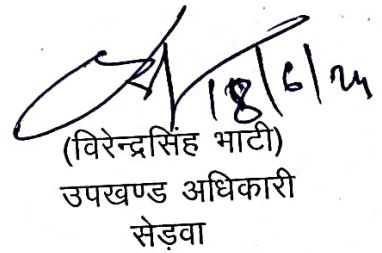 18/6/24
(विरेन्द्रसिंह भाटी)
उपखण्ड अधिकारी
सेड़वा